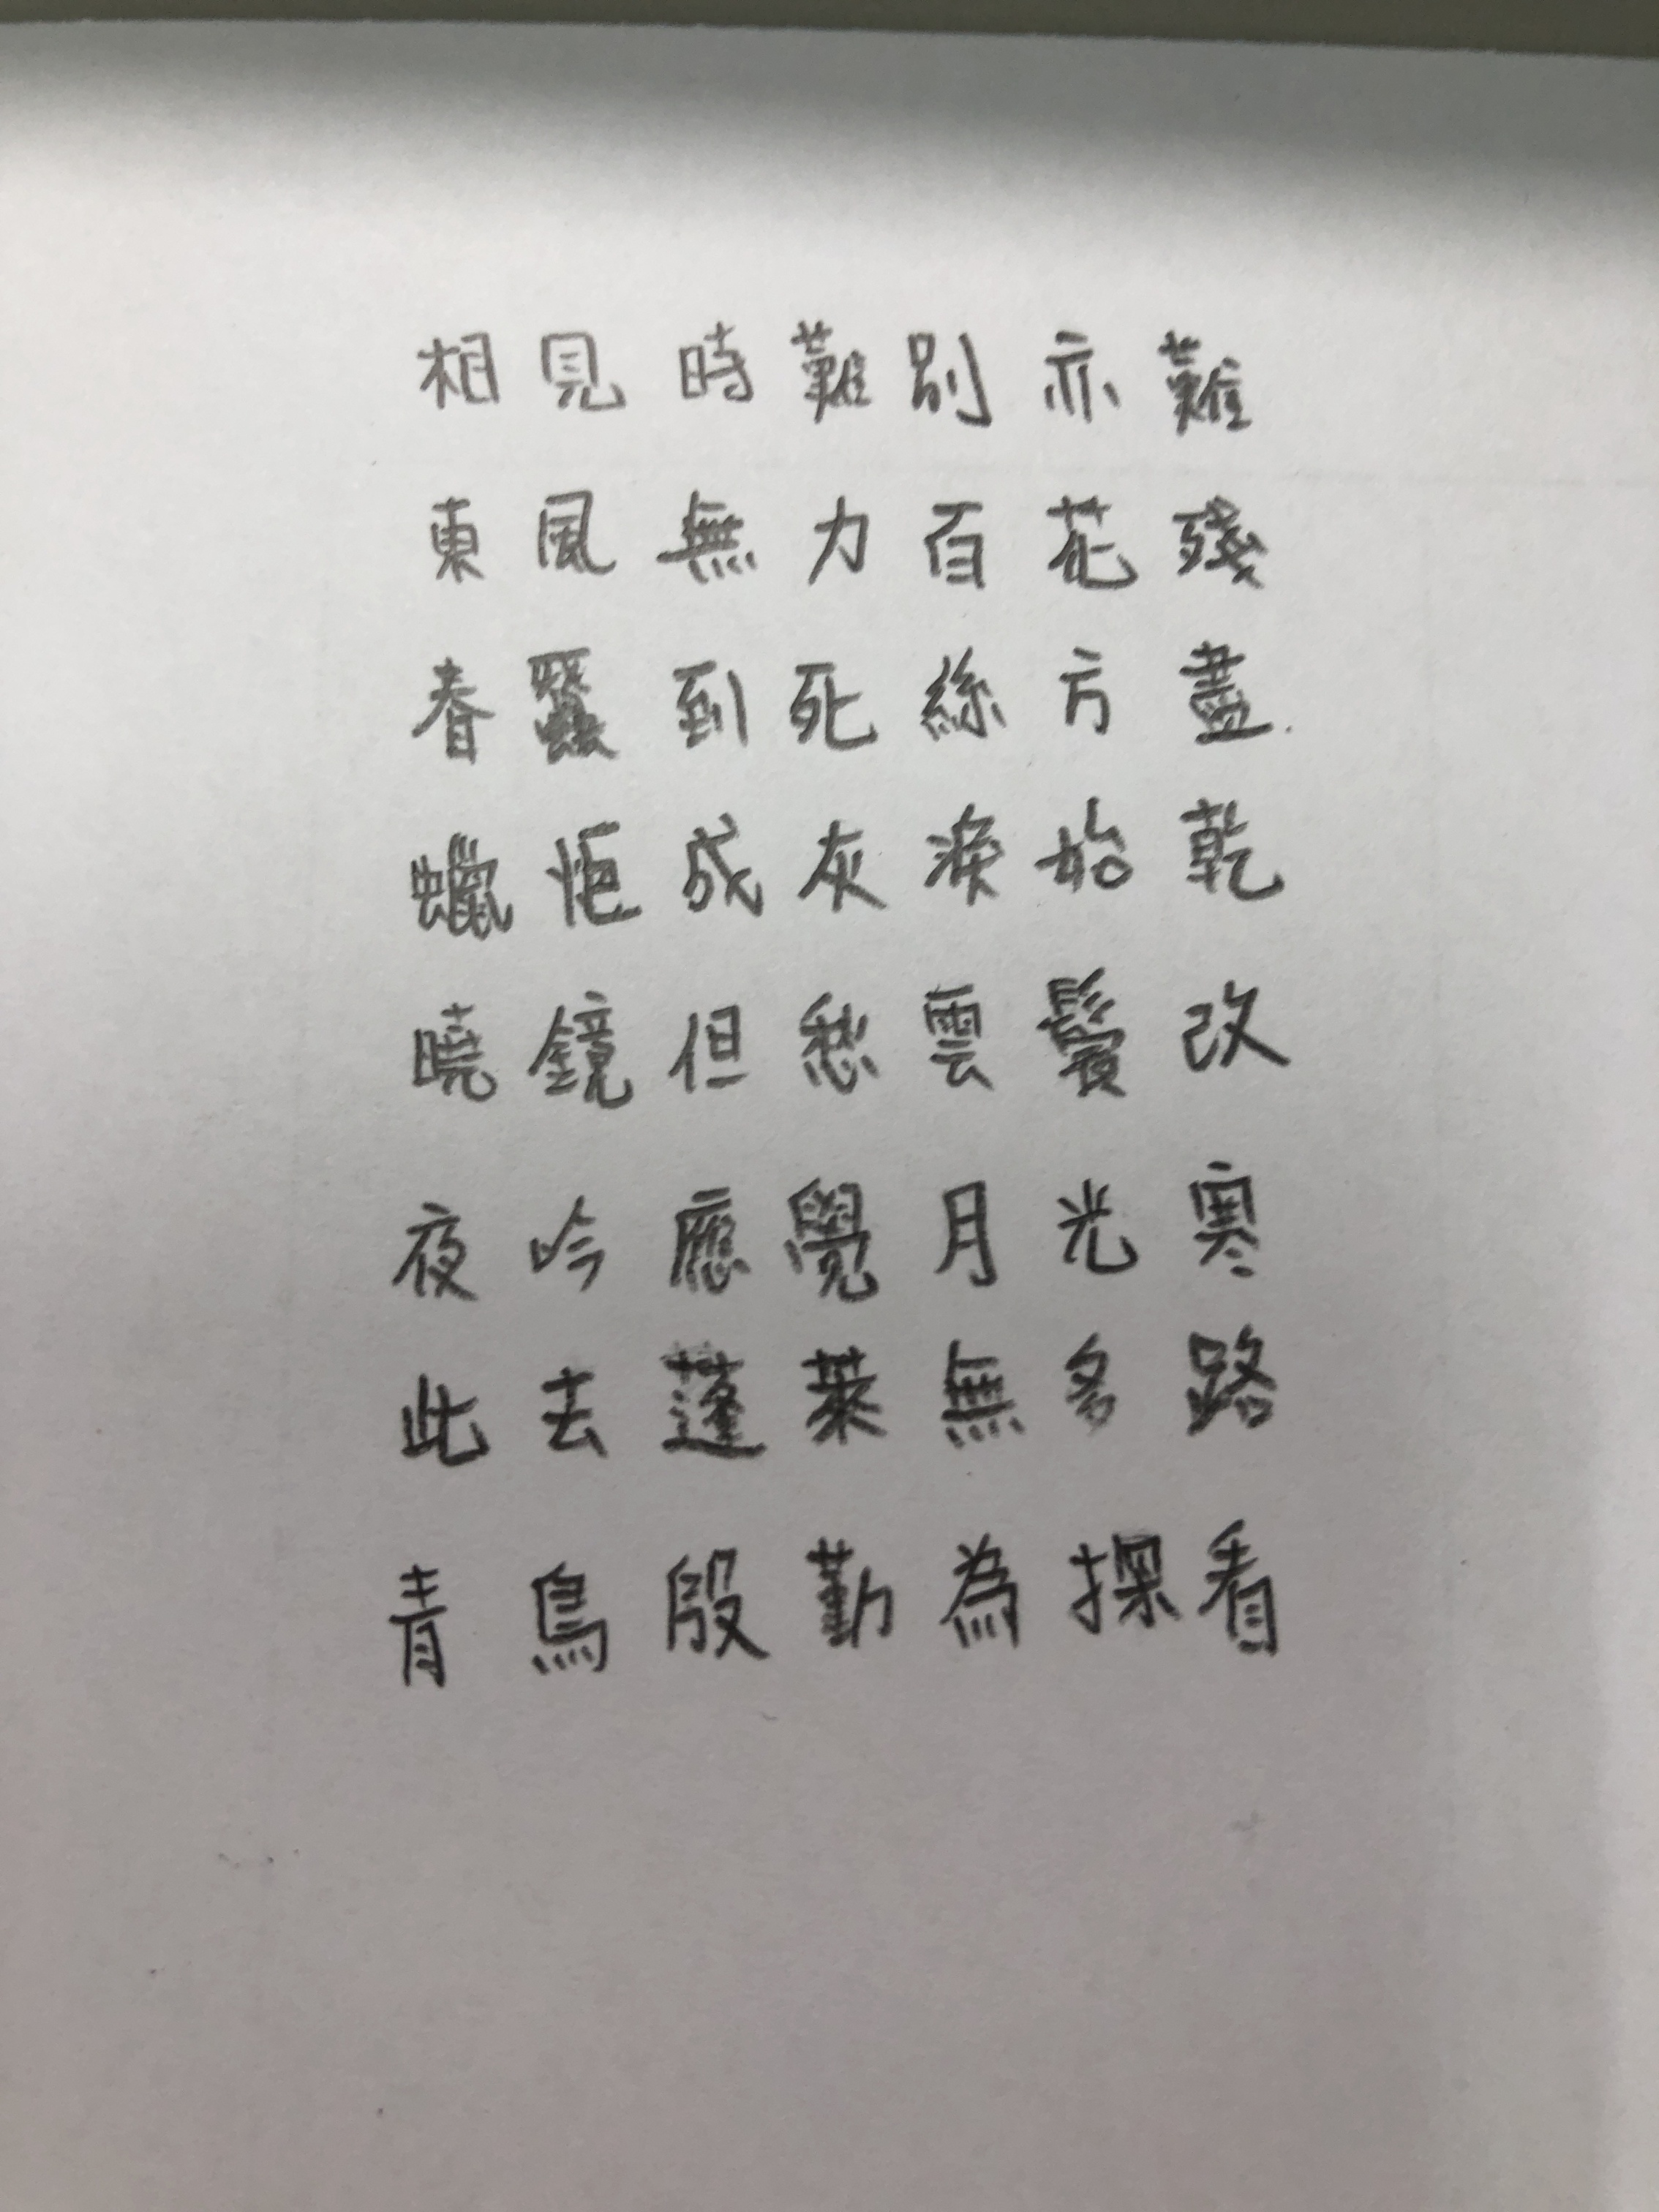 相見時難別亦難
東風無力百花殘
春蠶到死絲方盡
蠟炬成灰淚始乾
曉鏡但愁雲鬢改
夜吟應覺月光寒
此去蓬萊無多路
青鳥殷勤為探看